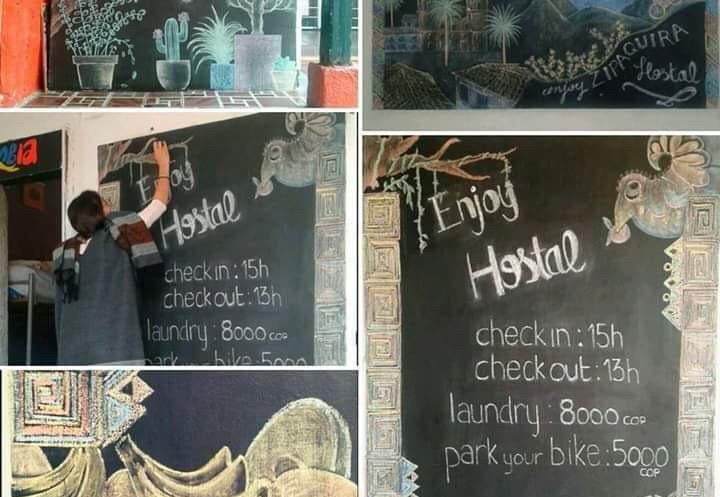 enjoy ZIPAQUIRA
Hostal
Enjoy
Hostal
check in : 15h
check out : 13h
laundry : 8000 COP
park your bike : 5000
Enjoy
Hostal
check in : 15h
check out : 13h
laundry : 8000 COP
park your bike : 5000
COP